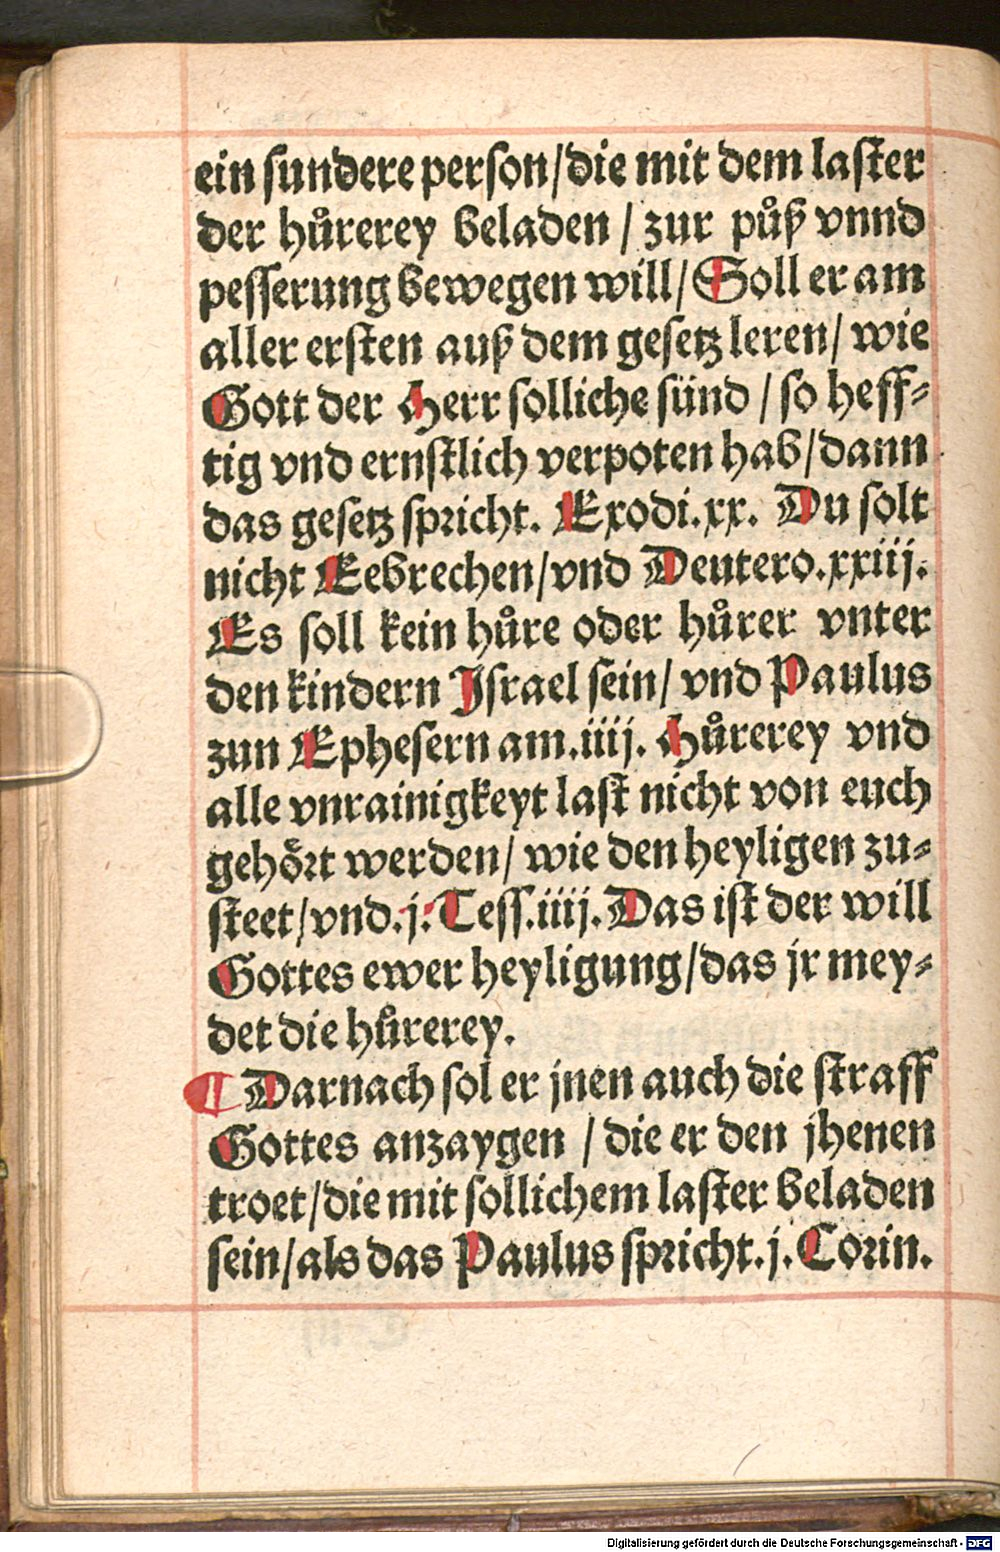 ein sundere person/die mit dem laster
der hůrerey beladen / zur půß vnnd
pesserung bewegen will/Soll er am
aller ersten auß dem gesetz leren/ wie
Gott der Herr solliche sünd / so heff⸗
tig vnd ernstlich verpoten hab/dann
das gesetz spricht. Exodi.xx. Du solt
nicht Eebrechen/vnd Deutero.xxiij.
Es soll kein hůre oder hůrer vnter
den kindern Israel sein/ vnd Paulus
zun Ephesern am.iiij. Hůrerey vnd
alle vnrainigkeyt last nicht von euch
gehört werden/ wie den heyligen zu⸗
steet/vnd.j.Tess.iiij.Das ist der will
Gottes ewer heyligung/das jr mey⸗
det die hůrerey.
¶ Darnach sol er jnen auch die straff
Gottes anzaygen / die er den jhenen
troet/die mit sollichem laster beladen
sein/als das Paulus spricht.j.Corin.
Digitalisierung gefördert durch die Deutsche Forschungsgemeinschaft - DFG